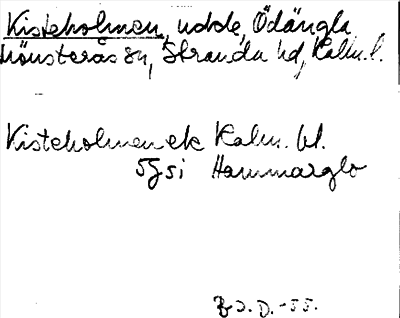 Kisteholmen, udde, Ödängla,
Mönsterås sn, Stranda hd, Kalm. l.
Kisteholmen ek Kalm. bl.
5g5i Hammarglo
J.D. -55.